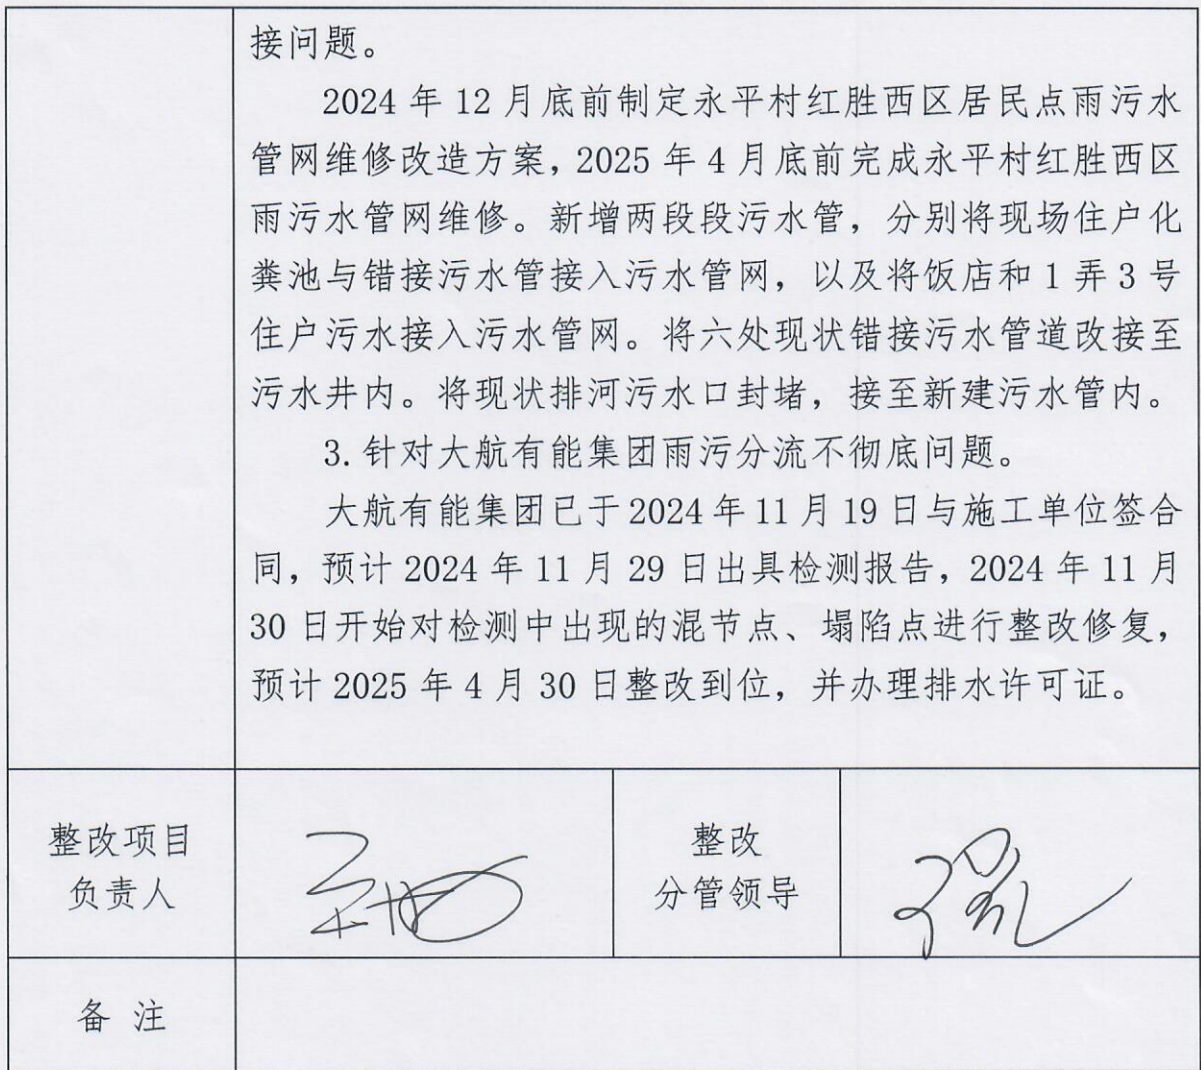 接问题。
2024 年 12 月底前制定永平村红胜西区居民点雨污水
管网维修改造方案，2025 年 4 月底前完成永平村红胜西区
雨污水管网维修。新增两段段污水管，分别将现场住户化
粪池与错接污水管接入污水管网，以及将饭店和 1 弄 3 号
住户污水接入污水管网。将六处现状错接污水管道改接至
污水井内。将现状排河污水口封堵，接至新建污水管内。
3. 针对大航有能集团雨污分流不彻底问题。
大航有能集团已于 2024 年 11 月 19 日与施工单位签合
同，预计 2024 年 11 月 29 日出具检测报告，2024 年 11 月
30 日开始对检测中出现的混节点、塌陷点进行整改修复，
预计 2025 年 4 月 30 日整改到位，并办理排水许可证。
整改项目
负责人
整改
分管领导
备 注